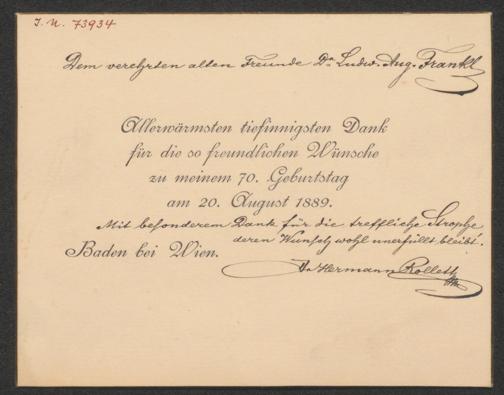 J. N. 73934
Dem verehrten alten Freunde Dr. Ludw. Aug. Frankl
Allerwärmsten tiefinnigsten Dank
für die so freundlichen Wünsche
zu meinem 70. Geburtstag
am 20. August 1889.
Mit besonderem Dank für die treffliche Strophe
deren Wunsch wohl unerfüllt bleibt.
Baden bei Wien.
Dr Hermann Rollett